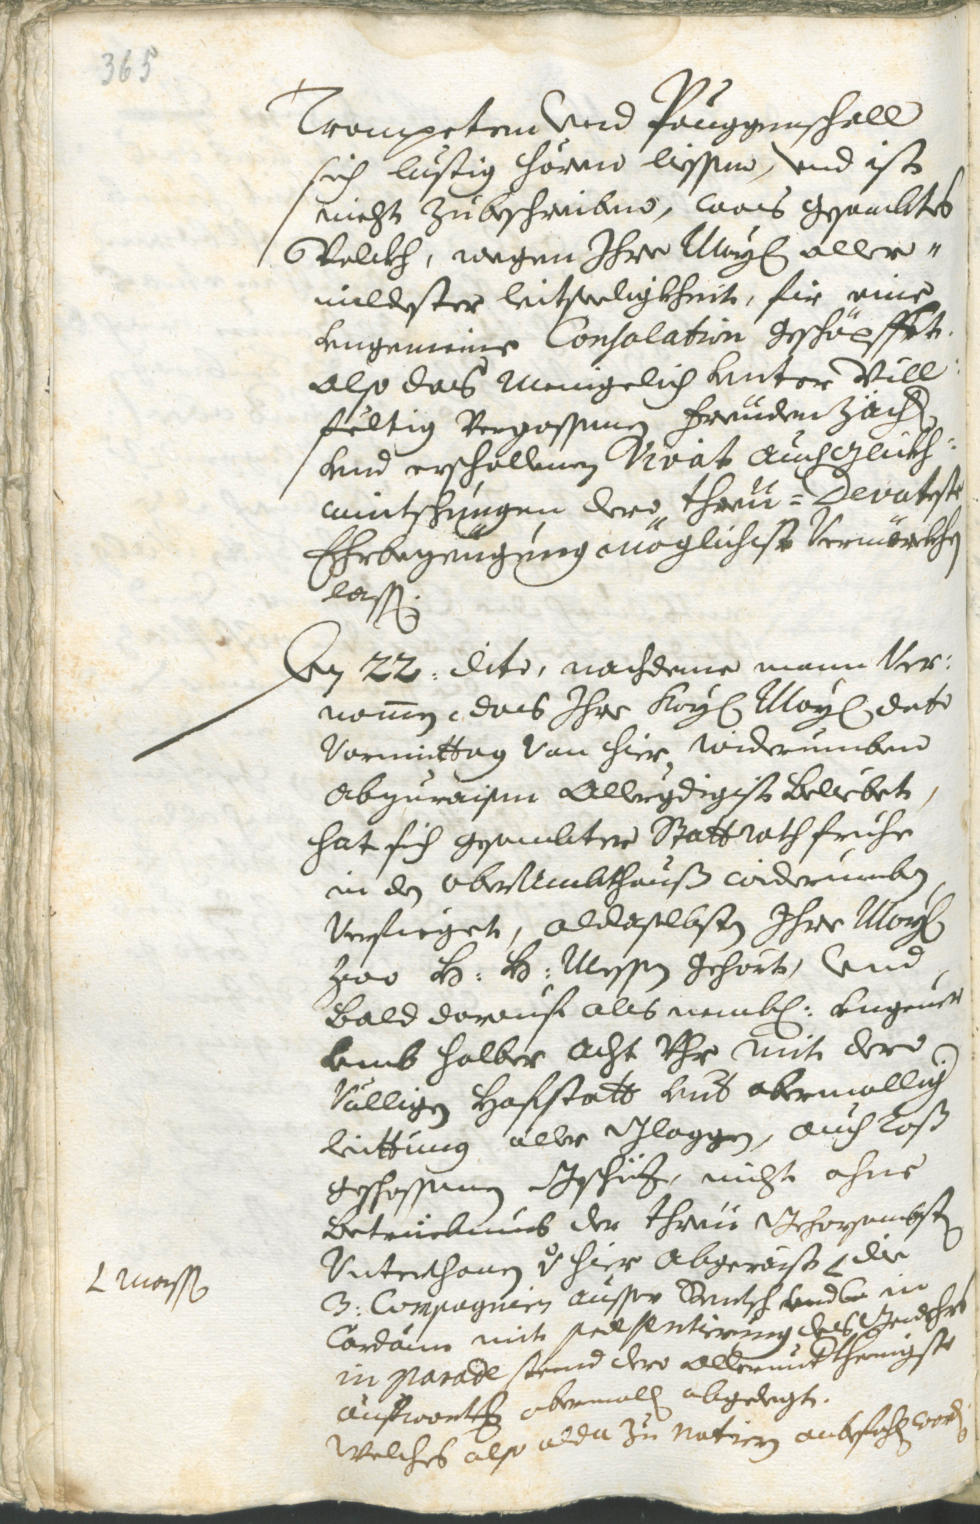 365
Trompeten Und Pauggenschall
sich lustig hören liessen, Und ist
nicht zubeschreiben, was gesambtes
Volckh, wegen Ihro May: aller"
mildester leitseeligkheit, für eine
ungemeine Consolation geschöpffet.
also das menigelich unter Vill:
feltig Vergossenen freuden zäch:
und erschallenen Vivat auch glickh=
wintschungen dero threu=Devoteste
Ehrbezeugung möglichist Vermörckhen
lass:
Den 22: dito, nachdeme mann Ver:
nomen, das Ihro Kay: May: dato
Vormittag Von hier, widerumben
abzuraisen Allergdigist Beliebet,
hat sich gesambter Stattrath fruhe
in das oberAmbthauß widerumben
Verfieget, aldaselbsten Ihro May:
zwo H: H: Messen gehört, Und
Bald darauf als nembl: ungeuer
umb halber Acht Uhr mit dero
Völligen Hofstatt unt abermallig
leittung aller Gloggen, auch Loß
geschossenen Geschitz, nicht ohne
Betriebnus der threu Gehorsambsten
Unterthanen V: hier abgeraist, die
L: mass:
3: Compagnien ausser Teutsch und in
Cordäun mit praesentierung des Gewehrs
in parade stend dero allerunderthenigste
aufwarth: abermall: abgelegt.
Welches also alda zu notiern anbefohlen word: